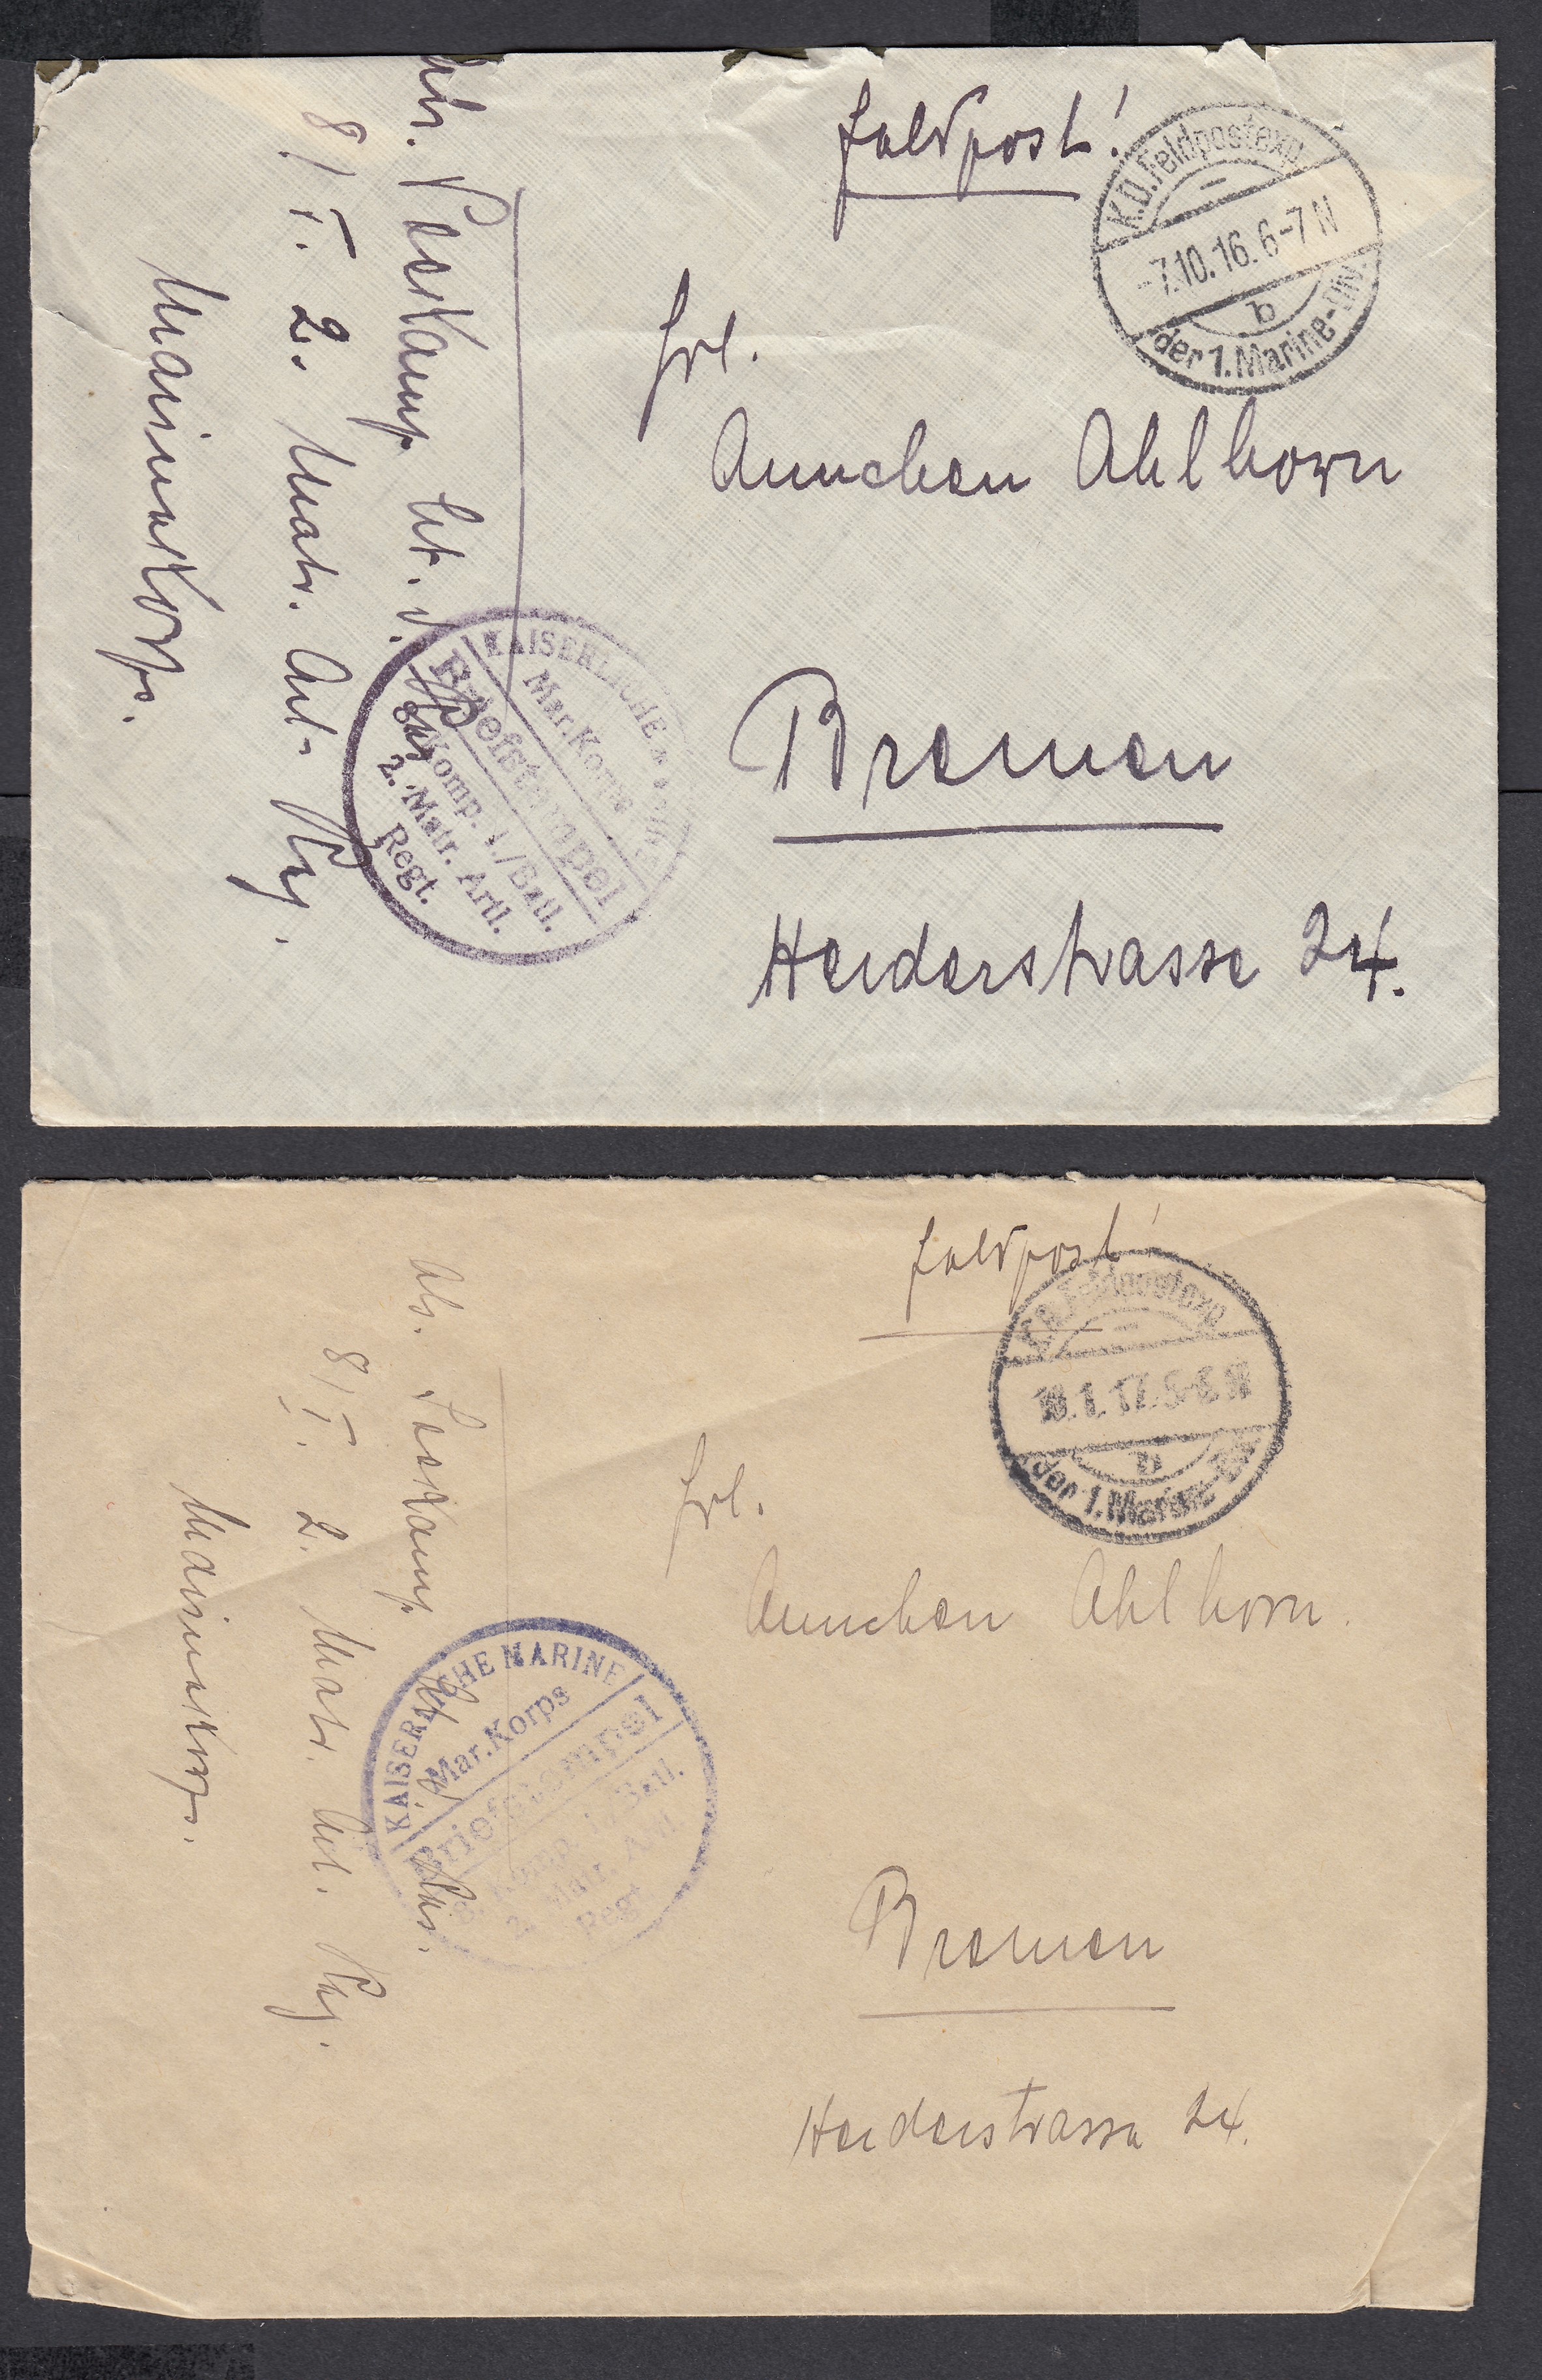 Feldpost!
K.D.Feldpostexp.
-7.10.16.6-7N
b
der 1.Marine-Div.
Frl.
Annchen Ahlhorn
Bremen
Herderstrasse 24.
Abs.
8/I. 2. Matr. Art. Rg.
Marinekorps.
KAISERLICHE
Mar.Korps
Briefstempel
Komp. I./Batl.
2. Matr. Artl.
Regt.
Feldpost!
K.D.Feldpostexp.
18.1.17.
b
der 1.Marine-Div.
Frl.
Annchen Ahlhorn.
Bremen
Herderstrasse 24.
Abs.
8/I. 2. Matr. Art. Rg.
Marinekorps.
KAISERLICHE MARINE
Mar.Korps
Briefstempel
8. Komp. I./Batl.
2. Matr. Artl.
Regt.